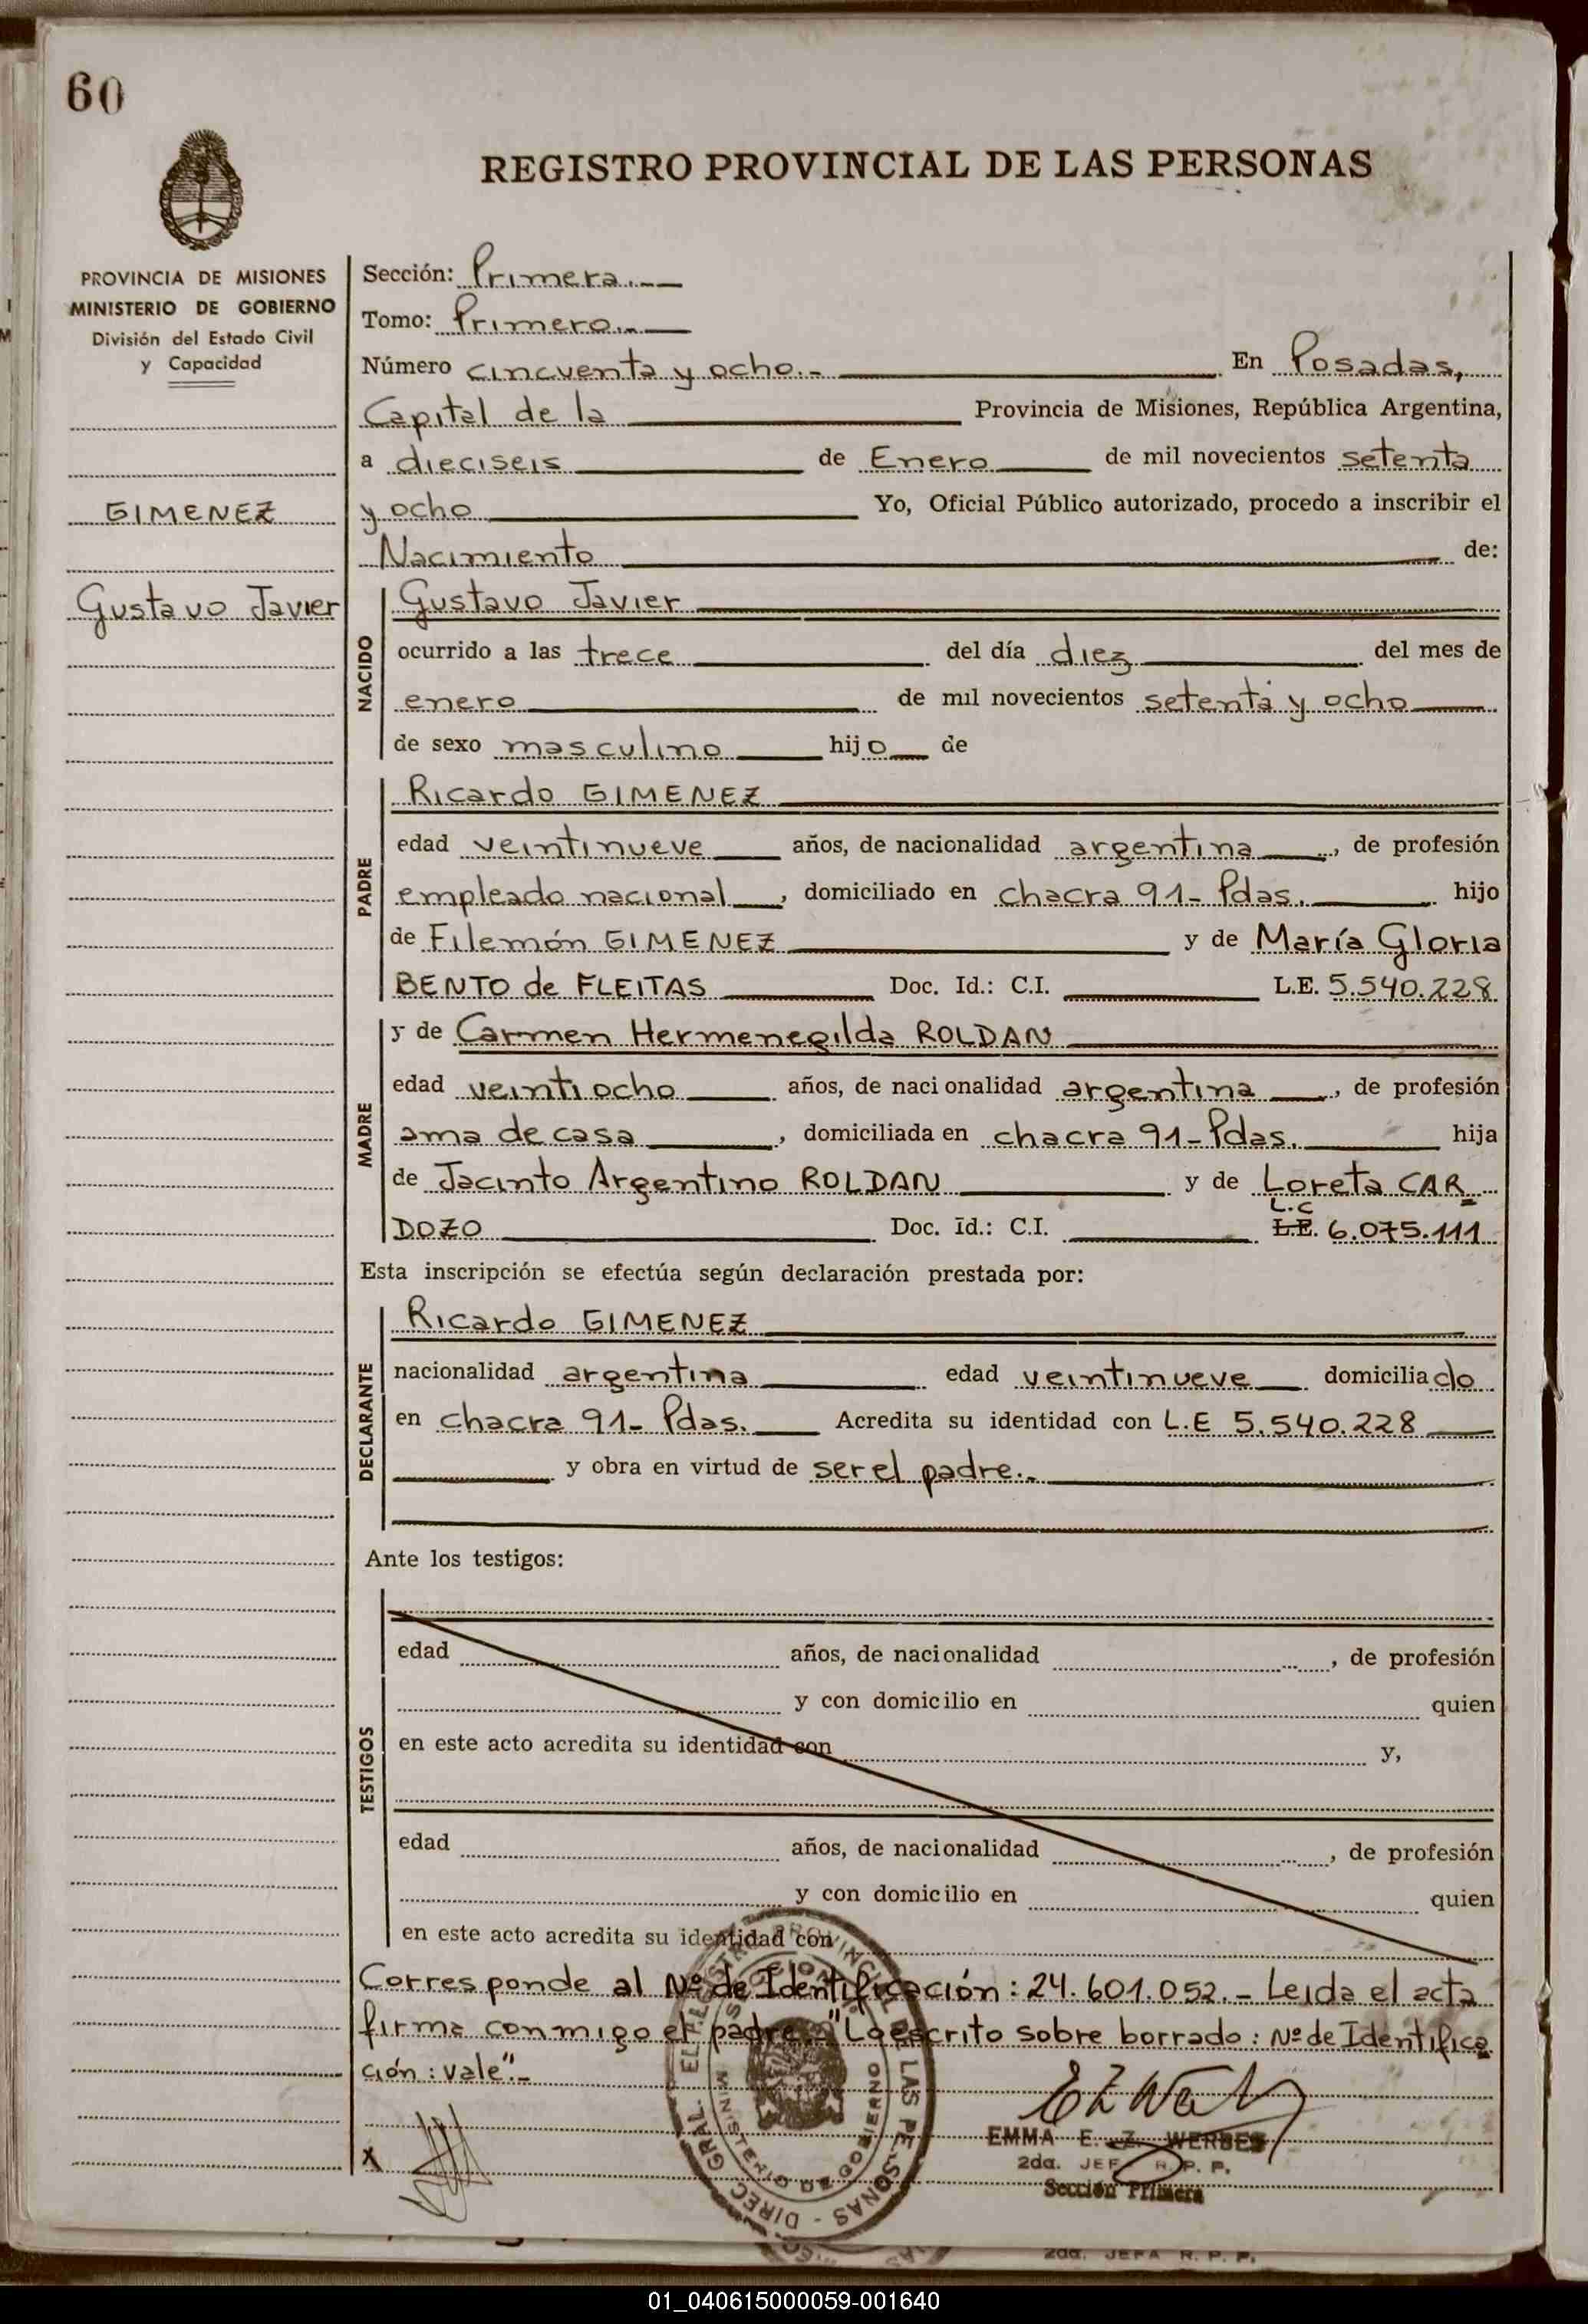 60
REGISTRO PROVINCIAL DE LAS PERSONAS
PROVINCIA DE MISIONES
MINISTERIO DE GOBIERNO
División del Estado Civil
y Capacidad
GIMENEZ
Gustavo Javier
Sección: Primera.-
Tomo: Primero.-
Número cincuenta y ocho.- En Posadas,
Capital de la Provincia de Misiones, República Argentina,
a dieciseis de Enero de mil novecientos setenta
y ocho Yo, Oficial Público autorizado, procedo a inscribir el
Nacimiento de:
NACIDO
Gustavo Javier
ocurrido a las trece del día diez del mes de
enero de mil novecientos setenta y ocho
de sexo masculino hijo de
PADRE
Ricardo GIMENEZ
edad veintinueve años, de nacionalidad argentina, de profesión
empleado nacional, domiciliado en chacra 91- Pdas. hijo
de Filemón GIMENEZ y de María Gloria
BENTO de FLEITAS Doc. Id.: C.I. L.E. 5.540.228
MADRE
y de Carmen Hermenegilda ROLDAN
edad veintiocho años, de nacionalidad argentina, de profesión
ama de casa, domiciliada en chacra 91- Pdas. hija
de Jacinto Argentino ROLDAN y de Loreta CAR
L.C
DOZO Doc. Id.: C.I. L.E. 6.075.111
Esta inscripción se efectúa según declaración prestada por:
DECLARANTE
Ricardo GIMENEZ
nacionalidad argentina edad veintinueve domiciliado
en chacra 91- Pdas. Acredita su identidad con L.E 5.540.228
y obra en virtud de ser el padre.-
Ante los testigos:
TESTIGOS
edad años, de nacionalidad , de profesión
y con domicilio en quien
en este acto acredita su identidad con y,
edad años, de nacionalidad , de profesión
y con domicilio en quien
en este acto acredita su identidad con
Corresponde al Nº de Identificación: 24.601.052.- Leida el acta
firma conmigo el padre.- "Lo escrito sobre borrado: Nº de Identifica
ción: Vale".-
X
EMMA E. Z. WERBES
2da. JEFA R. P. P.
Sección Primera
MINISTERIO DE GOBIERNO
2da. JEFA R. P. P.
01_040615000059-001640